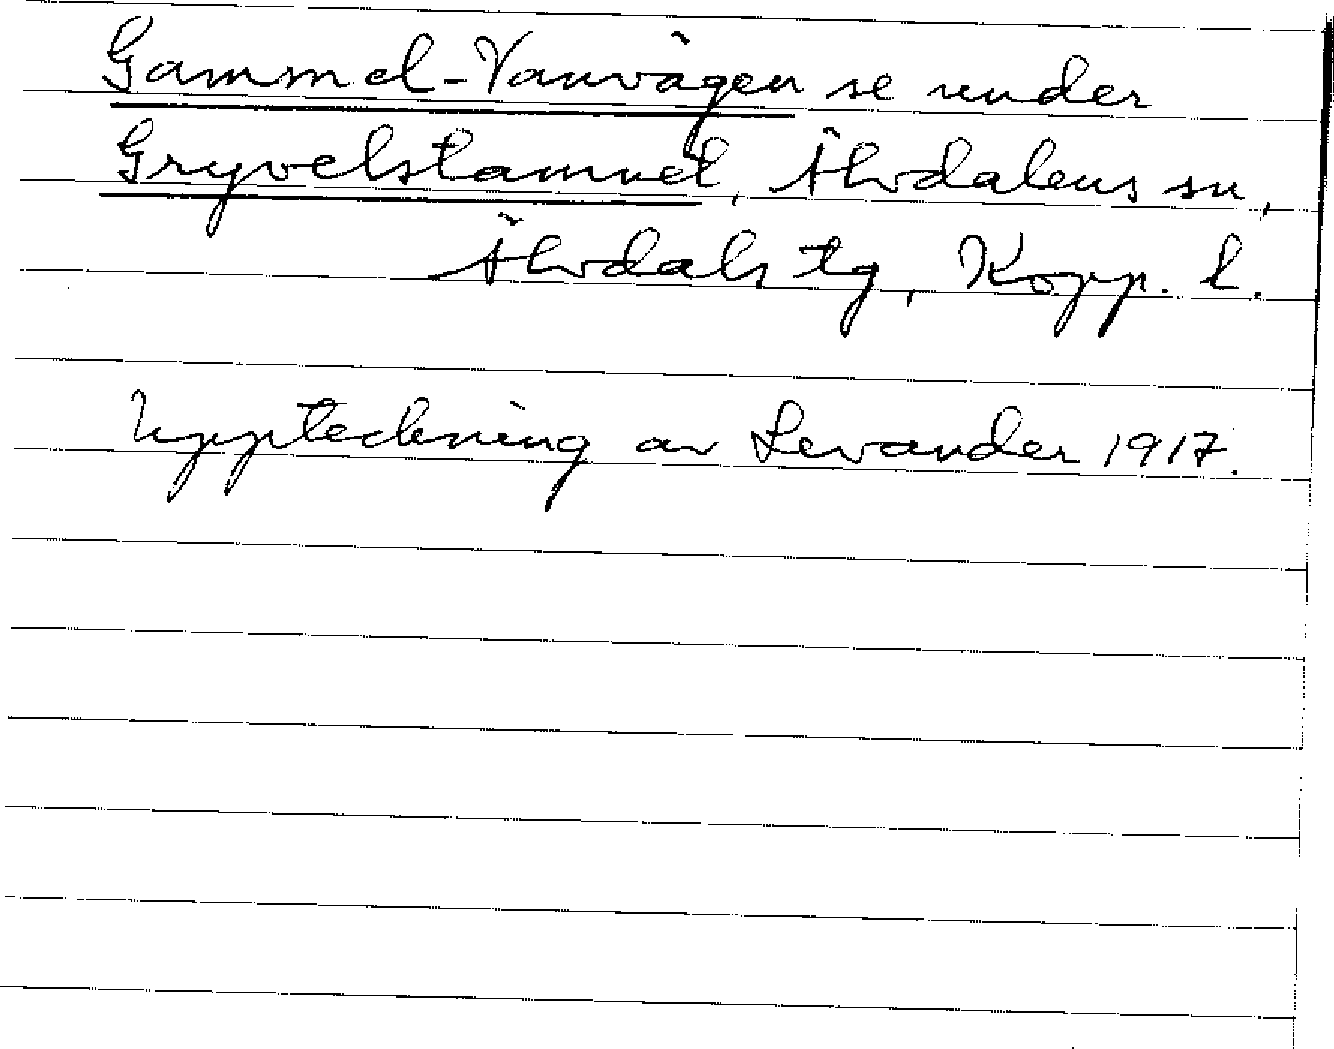 Gammel-Vanvägen se under
Gryvelstamnet, Älvdalens sn,
Älvdals tg, Kopp. l.
Uppteckning av Levander 1917.